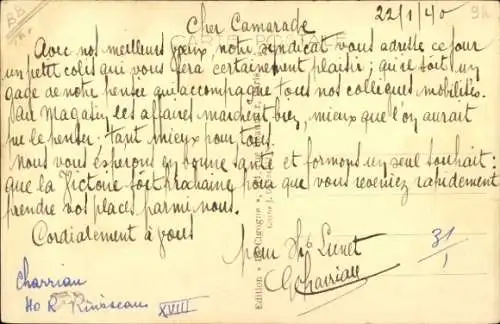 22/1/40
Cher Camarade
Avec nos meilleurs vœux notre syndicat vous adresse ce jour
un petit colis qui vous fera certainement plaisir ; qu'il soit un
gage de notre pensée qui accompagne tous nos collègues mobilisés.
Au Magasin, les affaires marchent bien, mieux que l'on aurait
pu le penser ; tant mieux pour tous.
Nous vous espérons en bonne santé et formons un seul souhait :
que la Victoire soit prochaine pour que vous reveniez rapidement
prendre vos places parmi nous.
Cordialement à vous
pour Lunet
Charriau
31/1
Charriau
40 R
XVIII